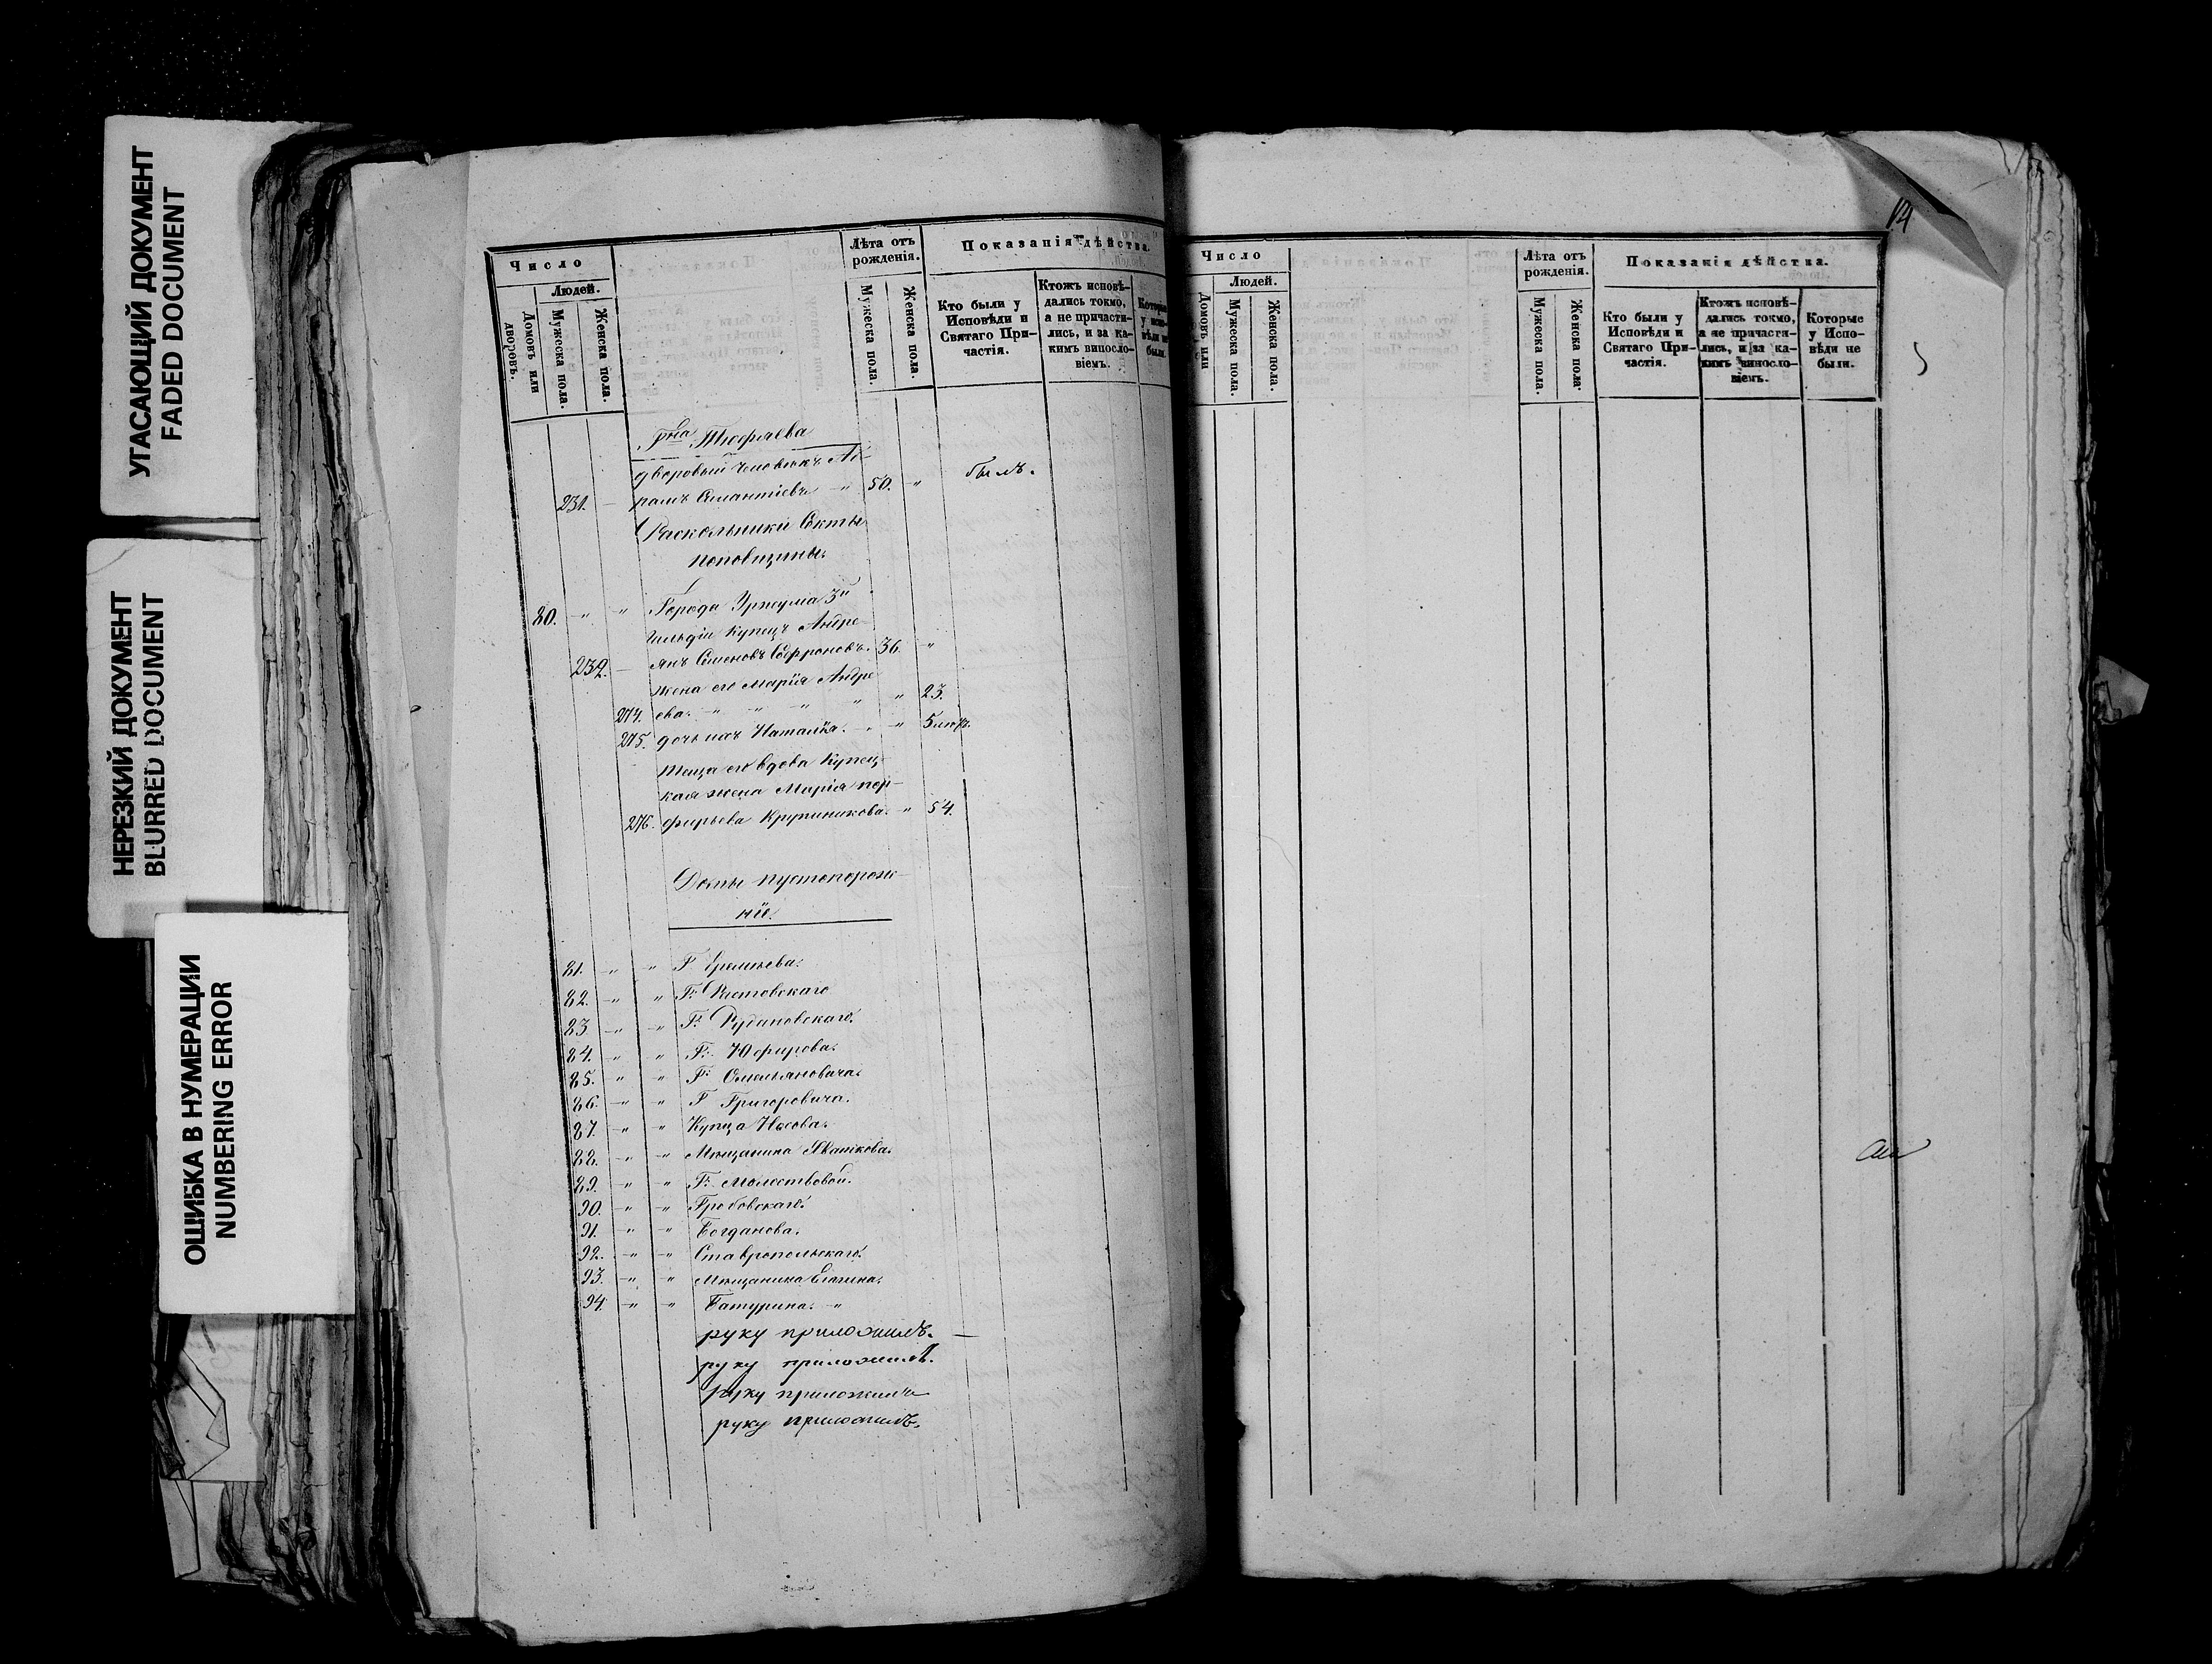 УГАСАЮЩИЙ ДОКУМЕНТ
FADED DOCUMENT
НЕРЕЗКИЙ ДОКУМЕНТ
BLURRED DOCUMENT
ОШИБКА В НУМЕРАЦИИ
NUMBERING ERROR
Число
Людей.
Домовъ или дворовъ.
Мужеска пола.
Женска пола.
Лѣта отъ рожденія.
Мужеска пола.
Женска пола.
Показанія дѣйства.
Кто были у Исповѣди и Святаго Причастія.
Ктожъ исповѣдались токмо, а не причастились, и за какимъ винословіемъ.
Которые у исповѣди не были.
Гна Тюфяева
дворовый человѣкъ Ав-
231. — рамъ —" 50. " былъ.
Раскольники Секты
поповщины.
80. " " Города Уржума 3й
гильдіи купецъ Андре
232. — янъ Семеновъ Софроновъ. 36. "
жена его Марія Андре
274. ева. " " " " " 23.
275. дочь ихъ Наталія. " " 5
теща его вдова купец
кая жена Марія пор-
276. фирьева Крупиникова. " 54.
Домы пустопорож-
ніе.
81. " " Г
82. " " Г: Ростовскаго
83 " " Г: Рудановскаго.
84. " " Г: Юфирова.
85. " " Г: Омельяновича.
86. " " Г Григоровича.
87. " " Купца Носова.
88. " " Мѣщанина
89. " " Г:
90. " " Гробовскаго.
91. " " Богданова.
92. " " Ставропольскаго.
93. " " Мѣщанина
94. " " Батурина. "
руку приложилъ. —
руку приложилъ.
руку приложилъ
руку приложилъ.
Число
Людей.
Домовъ или
Мужеска пола.
Женска пола.
Лѣта отъ рожденія.
Мужеска пола
Женска пола
Показанія дѣйства.
Кто были у Исповѣди и Святаго Причастія.
Ктожъ исповѣдались токмо, а не причастились, и за какимъ винословіемъ.
Которые у Исповѣди не были.